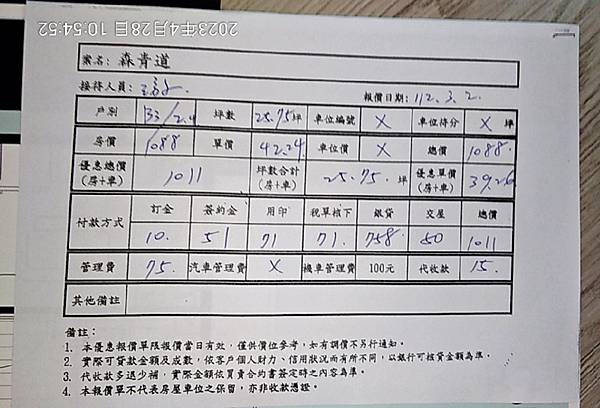 2023年4月28日 10:54:52
案名: 森青道
接待人員:
報價日期: 112.3.2.
戶別 B3/2.4 坪數 25.75坪 車位編號 X 車位得分 X 坪
房價 1088 單價 42.24 車位價 X 總價 1088.
優惠總價(房+車) 1011 坪數合計(房+車) 25.75.坪 優惠單價(房+車) 39.26
付款方式 訂金 簽約金 用印 稅單核下 銀貸 交屋 總價
10. 51 71 71. 758. 50 1011
管理費 75. 汽車管理費 X 機車管理費 100元 代收款 15.
其他備註
備註：
1. 本優惠報價單限報價當日有效，僅供價位參考，如有調價不另行通知。
2. 實際可貸款金額及成數，依客戶個人財力、信用狀況而有所不同，以銀行可核貸金額為準。
3. 代收款多退少補，實際金額依買賣合約書簽定時之內容為準。
4. 本報價單不代表房屋車位之保留，亦非收款憑證。